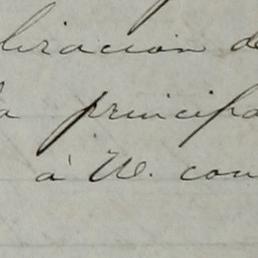 liracion de
a principa
à W. con